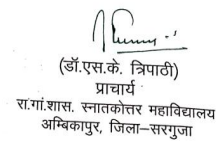 (डॉ.एस.के. त्रिपाठी)
प्राचार्य
रा.गां.शास. स्नातकोत्तर महाविद्यालय
अम्बिकापुर, जिला–सरगुजा